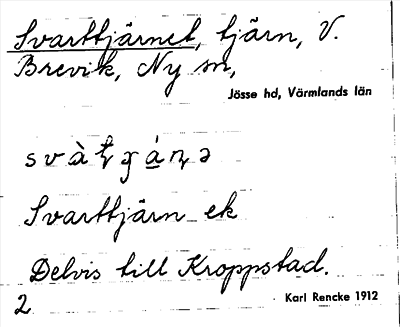 Svarttjärnet, tjärn, V.
Brevik, Ny sn,
Jösse hd, Värmlands län
Svarttjärn ek
Delvis till Kroppstad.
2
Karl Rencke 1912